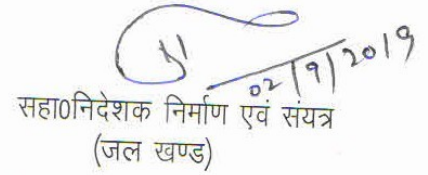 02/9/2019
सहा0निदेशक निर्माण एवं संयत्र
(जल खण्ड)